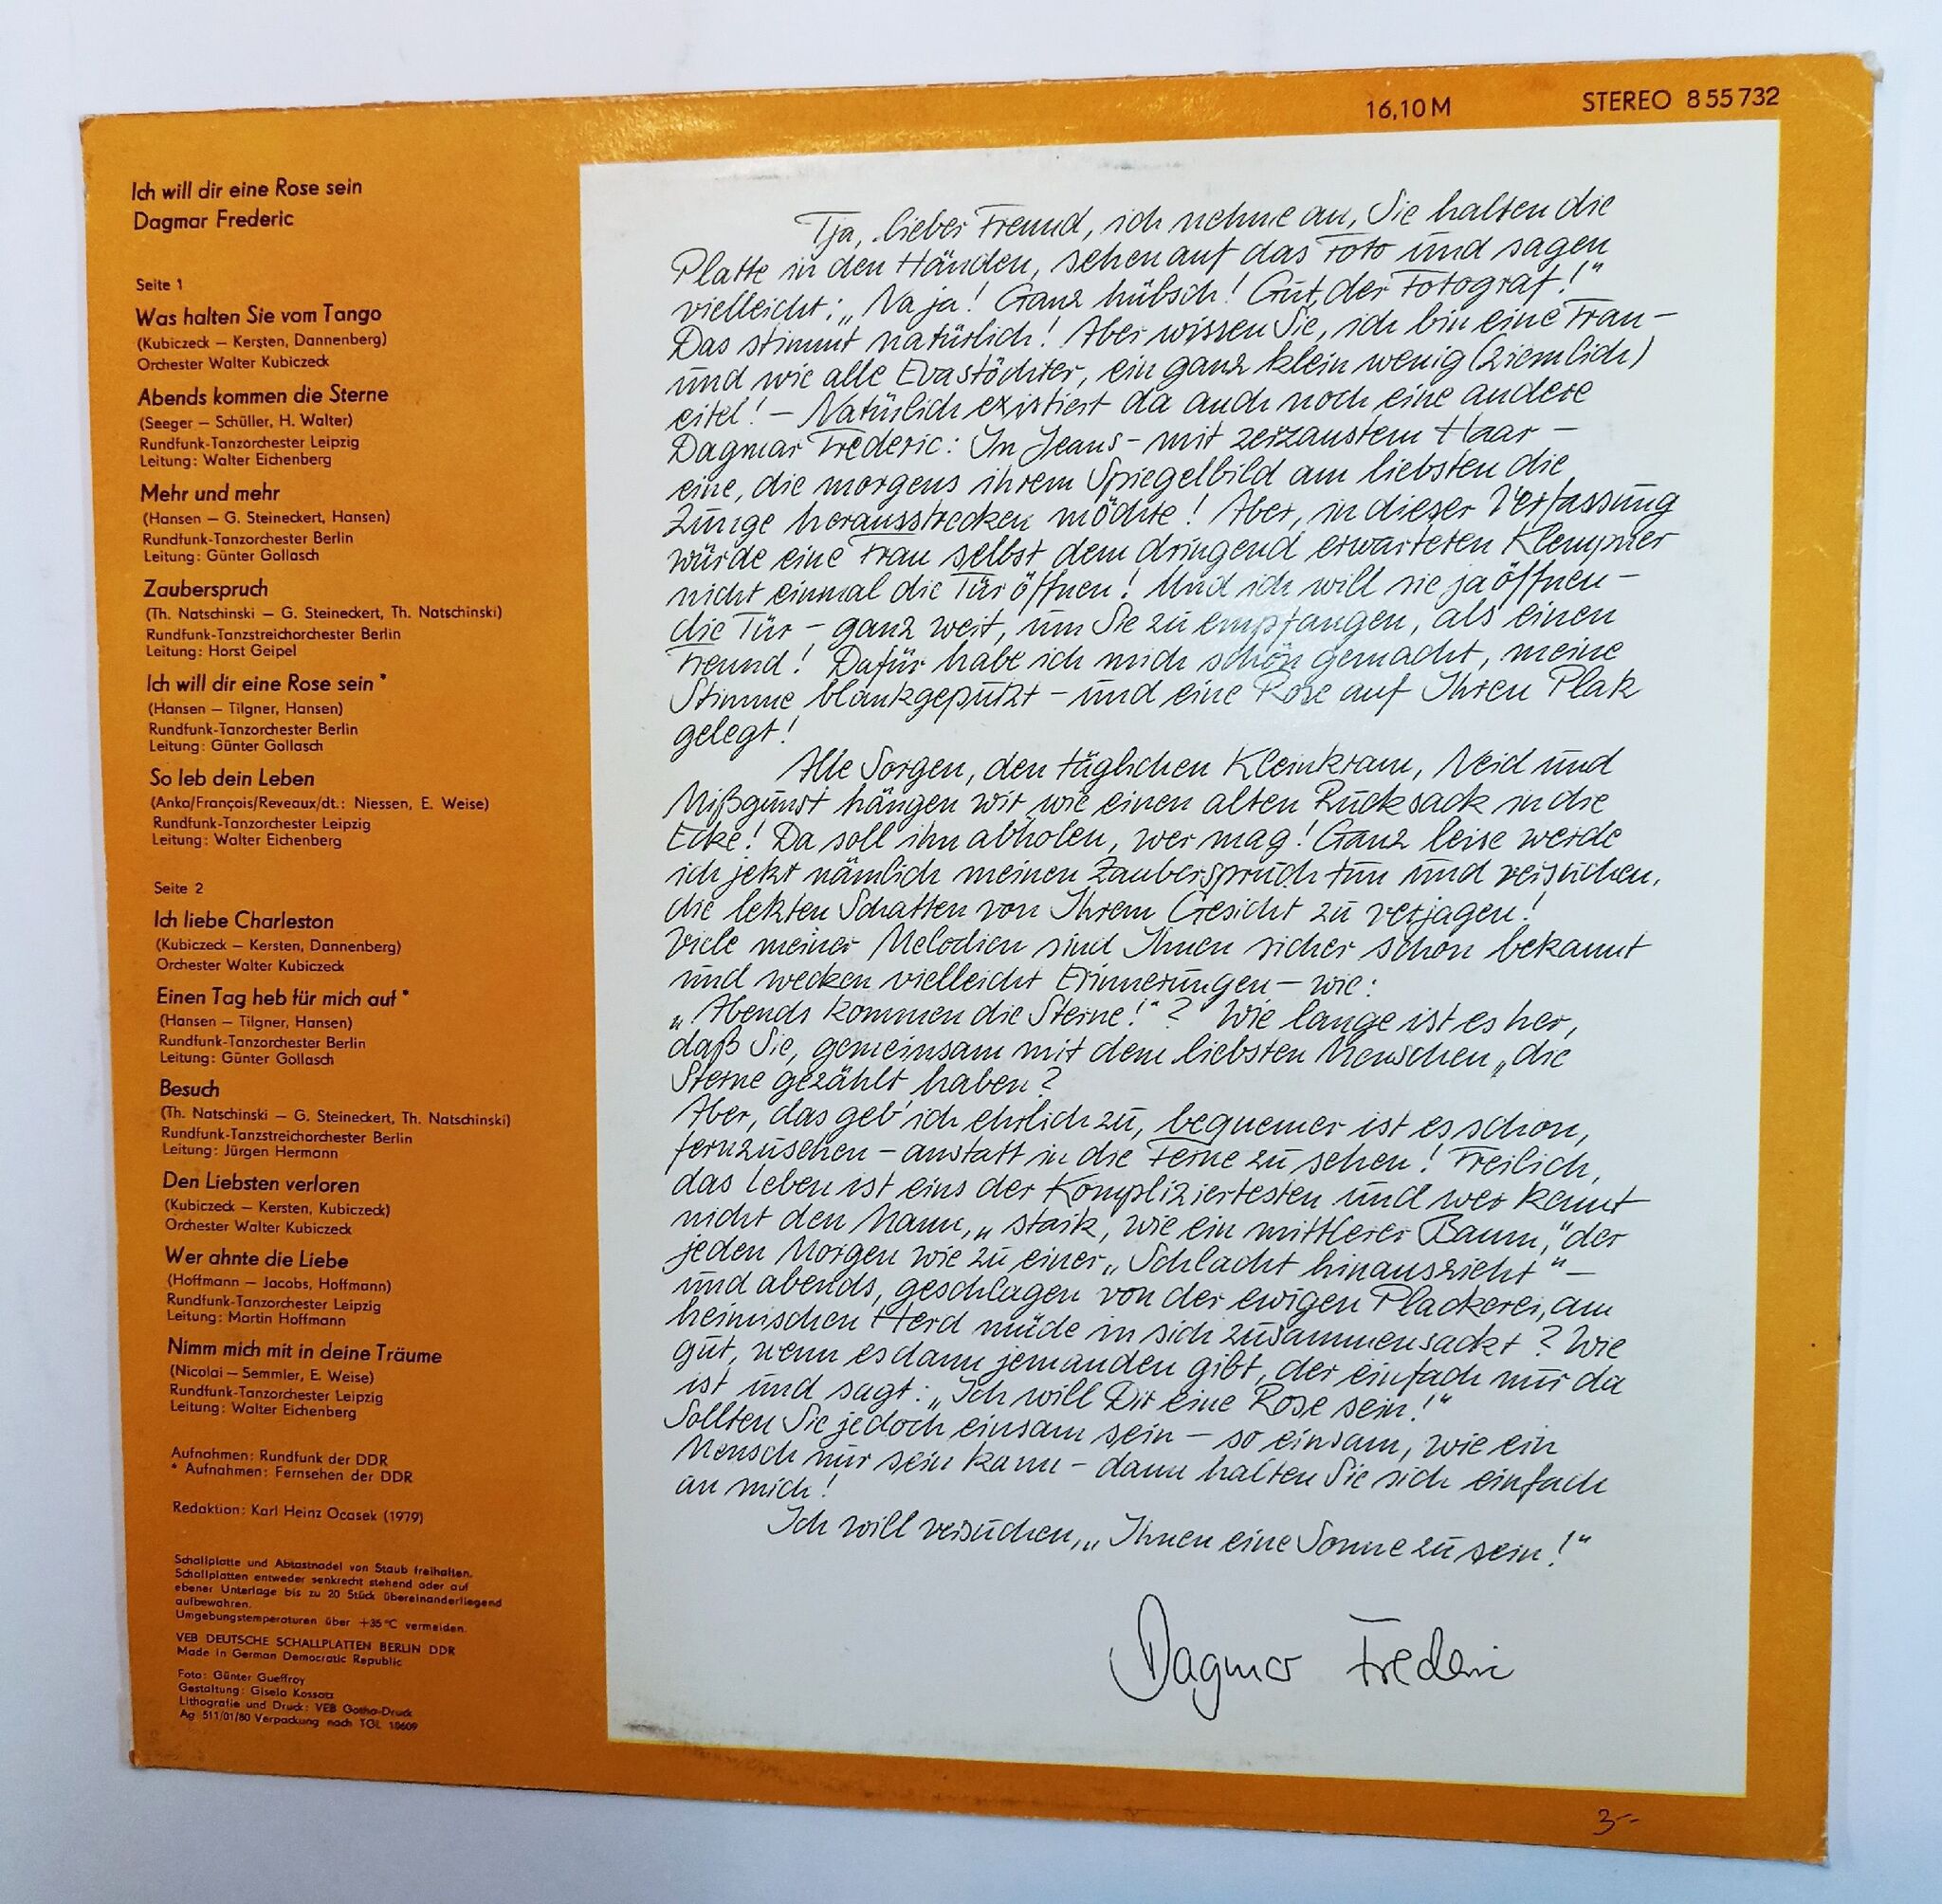 16,10 M
STEREO 8 55 732
Ich will dir eine Rose sein
Dagmar Frederic
Seite 1
Was halten Sie vom Tango
(Kubiczeck – Kersten, Dannenberg)
Orchester Walter Kubiczeck
Abends kommen die Sterne
(Seeger – Schüller, H. Walter)
Rundfunk-Tanzorchester Leipzig
Leitung: Walter Eichenberg
Mehr und mehr
(Hansen – G. Steineckert, Hansen)
Rundfunk-Tanzorchester Berlin
Leitung: Günter Gollasch
Zauberspruch
(Th. Natschinski – G. Steineckert, Th. Natschinski)
Rundfunk-Tanzstreichorchester Berlin
Leitung: Horst Geipel
Ich will dir eine Rose sein *
(Hansen – Tilgner, Hansen)
Rundfunk-Tanzorchester Berlin
Leitung: Günter Gollasch
So leb dein Leben
(Anka/François/Reveaux/dt.: Niessen, E. Weise)
Rundfunk-Tanzorchester Leipzig
Leitung: Walter Eichenberg
Seite 2
Ich liebe Charleston
(Kubiczeck – Kersten, Dannenberg)
Orchester Walter Kubiczeck
Einen Tag heb für mich auf *
(Hansen – Tilgner, Hansen)
Rundfunk-Tanzorchester Berlin
Leitung: Günter Gollasch
Besuch
(Th. Natschinski – G. Steineckert, Th. Natschinski)
Rundfunk-Tanzstreichorchester Berlin
Leitung: Jürgen Hermann
Den Liebsten verloren
(Kubiczeck – Kersten, Kubiczeck)
Orchester Walter Kubiczeck
Wer ahnte die Liebe
(Hoffmann – Jacobs, Hoffmann)
Rundfunk-Tanzorchester Leipzig
Leitung: Martin Hoffmann
Nimm mich mit in deine Träume
(Nicolai – Semmler, E. Weise)
Rundfunk-Tanzorchester Leipzig
Leitung: Walter Eichenberg
Aufnahmen: Rundfunk der DDR
* Aufnahmen: Fernsehen der DDR
Redaktion: Karl Heinz Ocasek (1979)
Schallplatte und Abtastnadel von Staub freihalten.
Schallplatten entweder senkrecht stehend oder auf
ebener Unterlage bis zu 20 Stück übereinanderliegend
aufbewahren.
Umgebungstemperaturen über +35 °C vermeiden.
VEB DEUTSCHE SCHALLPLATTEN BERLIN DDR
Made in German Democratic Republic
Foto: Günter Gueffroy
Gestaltung: Gisela Kossatz
Lithografie und Druck: VEB Gotha-Druck
Ag 511/01/80 Verpackung nach TGL 10609
Tja, lieber Freund, ich nehme an, Sie halten die
Platte in den Händen, sehen auf das Foto und sagen
vielleicht: „Na ja! Ganz hübsch! Gut, der Fotograf!"
Das stimmt natürlich! Aber wissen Sie, ich bin eine Frau –
und wie alle Evastöchter, ein ganz klein wenig (ziemlich)
eitel! – Natürlich existiert da auch noch eine andere
Dagmar Frederic: In Jeans – mit zerzaustem Haar –
eine, die morgens ihrem Spiegelbild am liebsten die
Zunge herausstrecken möchte! Aber, in dieser Verfassung
würde eine Frau selbst dem dringend erwarteten Klempner
nicht einmal die Tür öffnen! Und ich will sie ja öffnen –
die Tür – ganz weit, um Sie zu empfangen, als einen
Freund! Dafür habe ich mich schön gemacht, meine
Stimme blankgeputzt – und eine Rose auf Ihren Platz
gelegt!
Alle Sorgen, den täglichen Kleinkram, Neid und
Mißgunst hängen wir wie einen alten Rucksack in die
Ecke! Da soll ihn abholen, wer mag! Ganz leise werde
ich jetzt nämlich meinen Zauberspruch tun und versuchen,
die letzten Schatten von Ihrem Gesicht zu verjagen!
Viele meiner Melodien sind Ihnen sicher schon bekannt
und wecken vielleicht Erinnerungen – wie:
„Abends kommen die Sterne!"? Wie lange ist es her,
daß Sie, gemeinsam mit dem liebsten Menschen „die
Sterne gezählt haben?
Aber, das geb' ich ehrlich zu, bequemer ist es schon,
fernzusehen – anstatt in die Ferne zu sehen! Freilich,
das Leben ist eins der Kompliziertesten und wer kennt
nicht den Mann, „stark, wie ein mittlerer Baum," der
jeden Morgen wie zu einer „Schlacht hinauszieht" –
und abends, geschlagen von der ewigen Plackerei, am
heimischen Herd müde in sich zusammensackt? Wie
gut, wenn es dann jemanden gibt, der einfach nur da
ist und sagt: „Ich will Dir eine Rose sein!"
Sollten Sie jedoch einsam sein – so einsam, wie ein
Mensch nur sein kann – dann halten Sie sich einfach
an mich!
Ich will versuchen, „Ihnen eine Sonne zu sein!"
Dagmar Frederic
3--